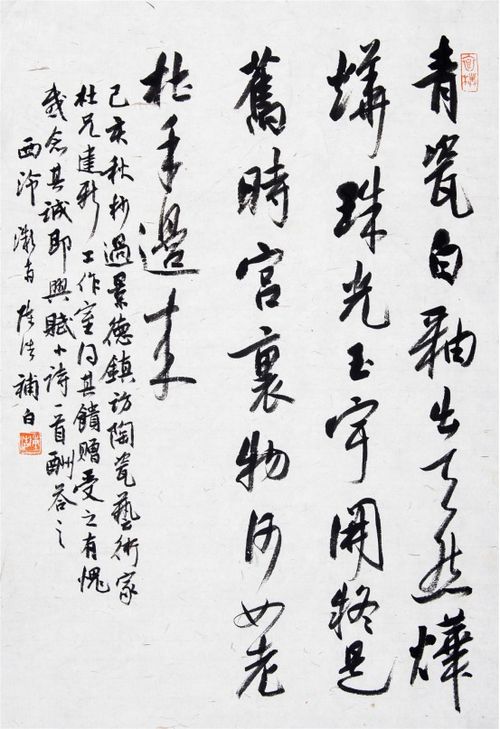 青瓷白釉出天然燁
燁珠光玉宇開終是
舊時宮裏物何如老
杜手邊来
己亥秋杪過景德鎮訪陶瓷藝術家
杜兄建新工作室得其饋贈受之有愧
感念其誠即興賦小詩一首酬答之
西泠補白